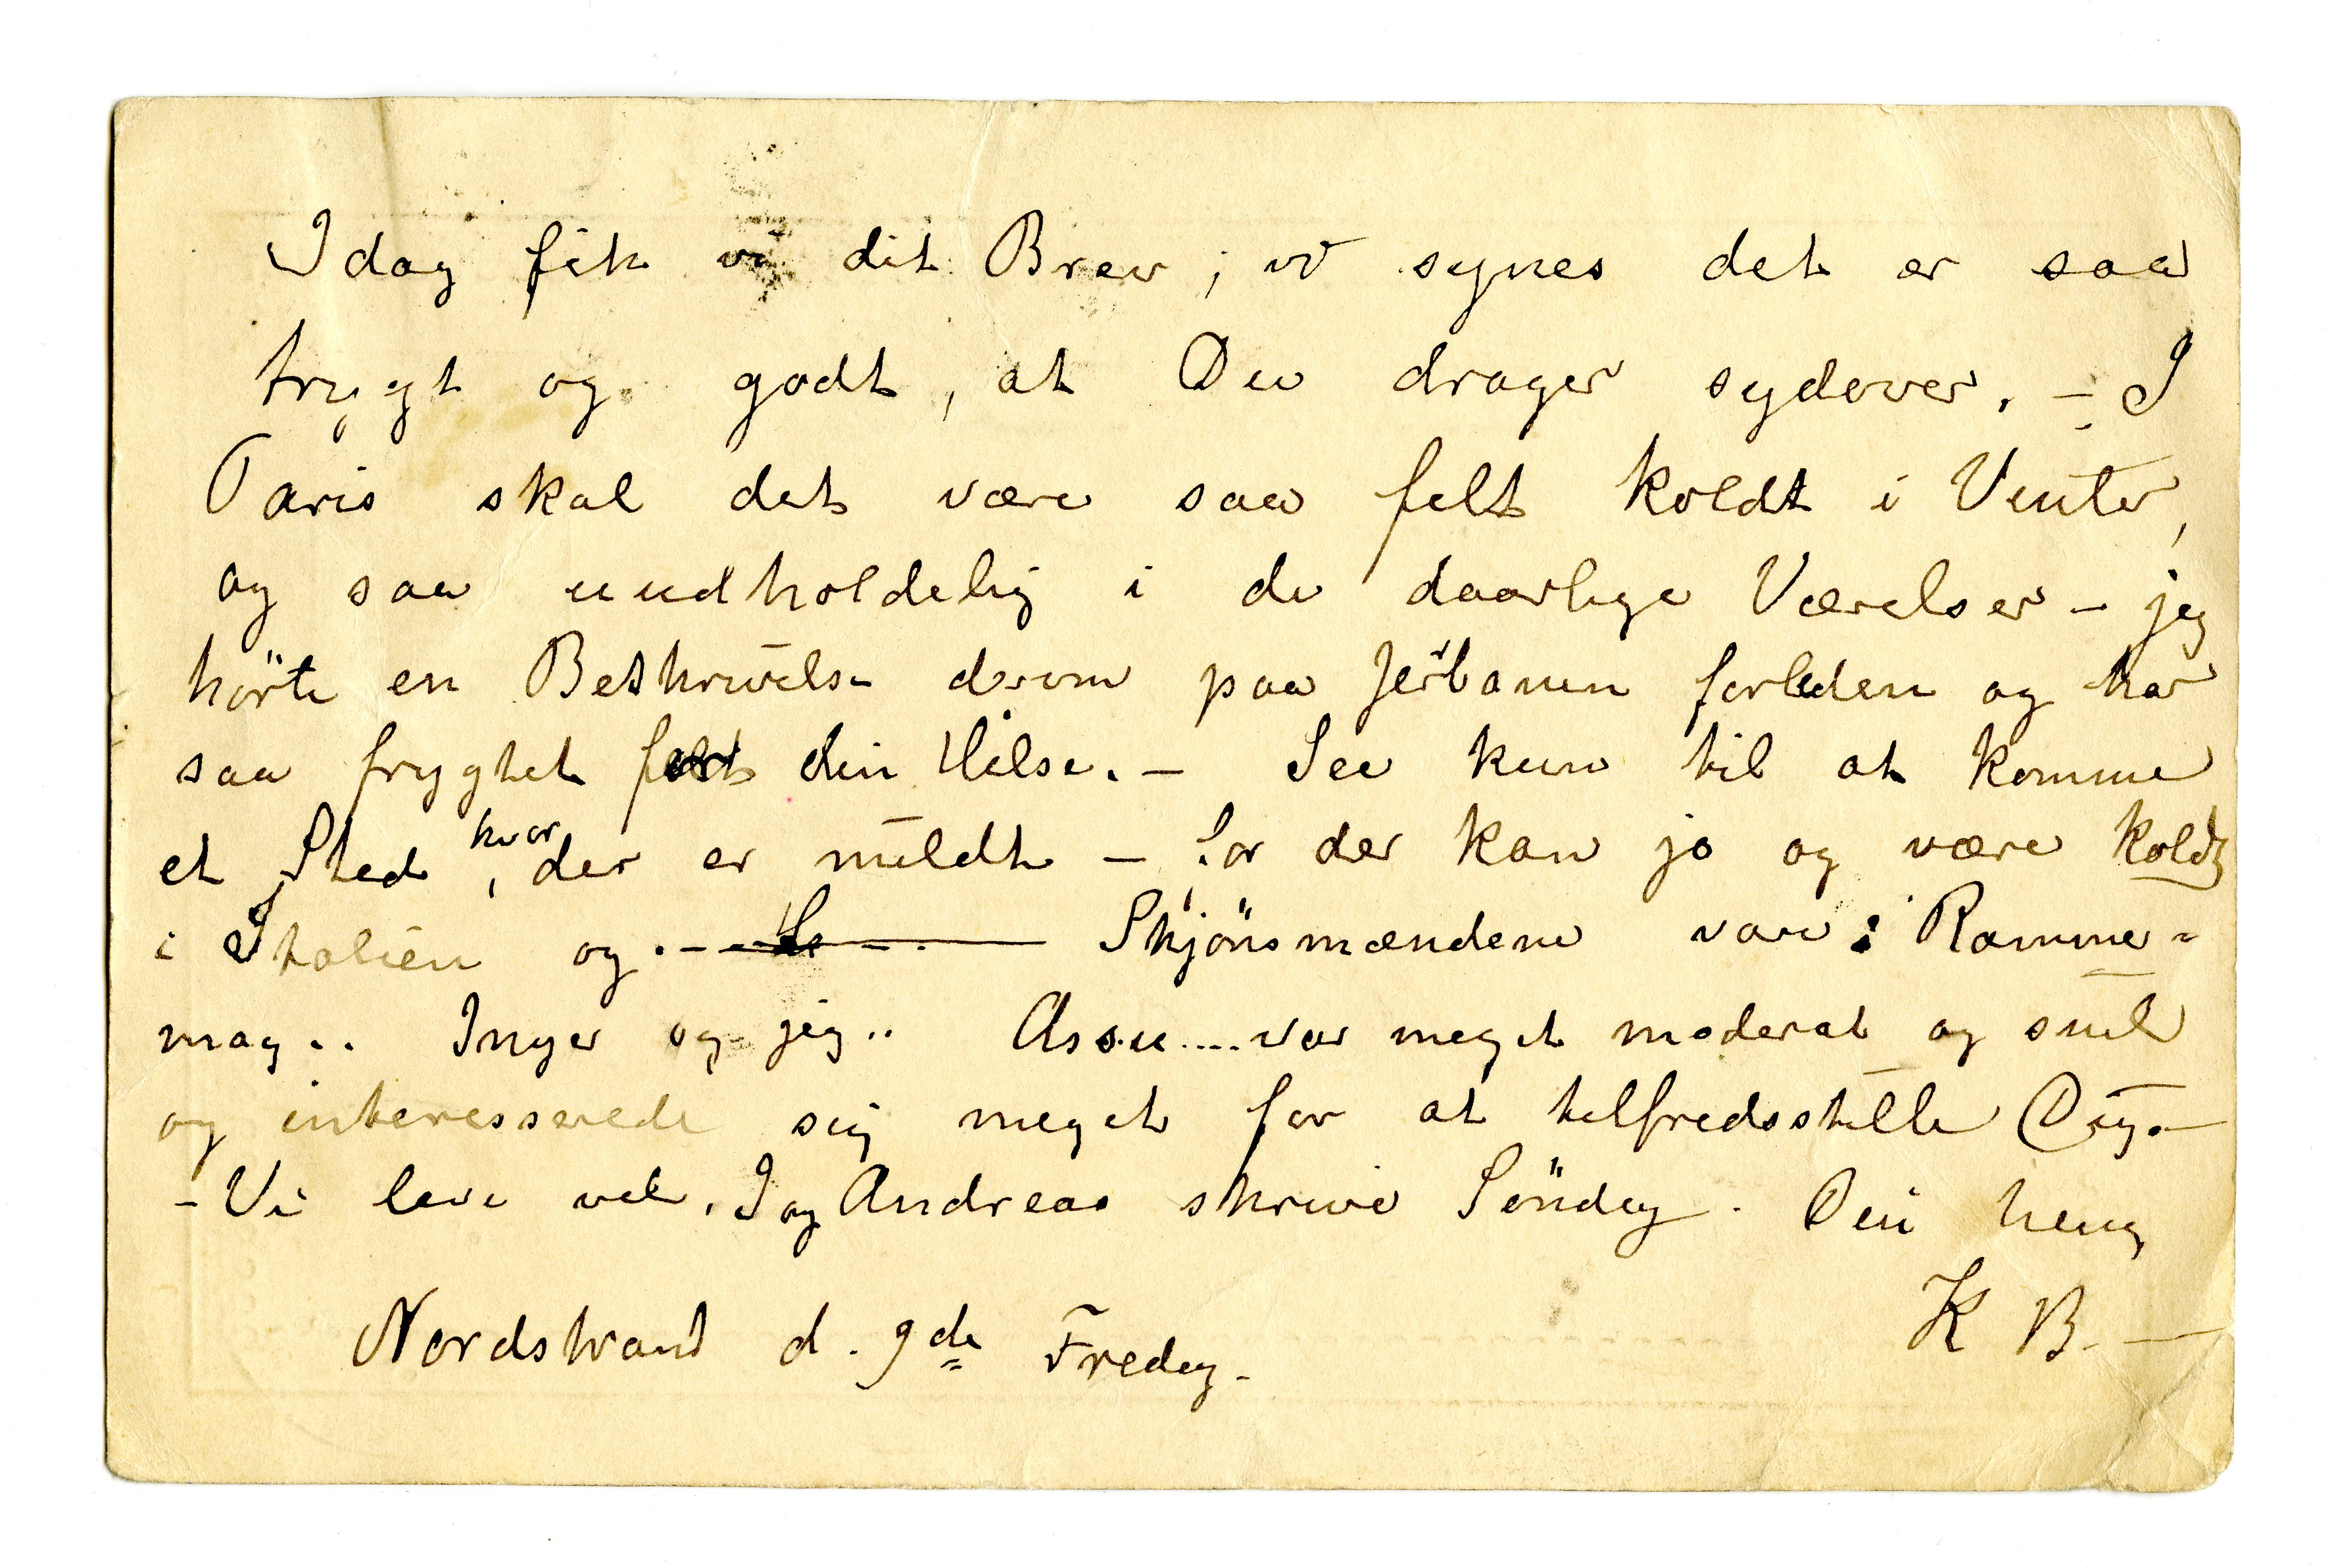 Idag fik vi dit Brev; vi synes det er saa
trygt og godt, at Du drager sydover. – I
Paris skal det være saa felt koldt i Vinter,
og saa uudholdelig i de daarlige Værelser – jeg
hörte en Beskrivelse derom paa Jerbanen forleden og har
saa frygtet for din Helse. – See kun til at komme
et Sted, hvor der er mildt – for der kan jo og være koldt
i Italien og. – Skjönsmændene var i Ramme-
mag.. Inger og jeg.. Assu.... var meget moderat og snil
og interesserede sig meget for at tilfredsstille Dig. –
– Vi leve vel. I og Andreas skrive Söndag. Din heng
K B. –
Nordstrand d. 9de Fredag.